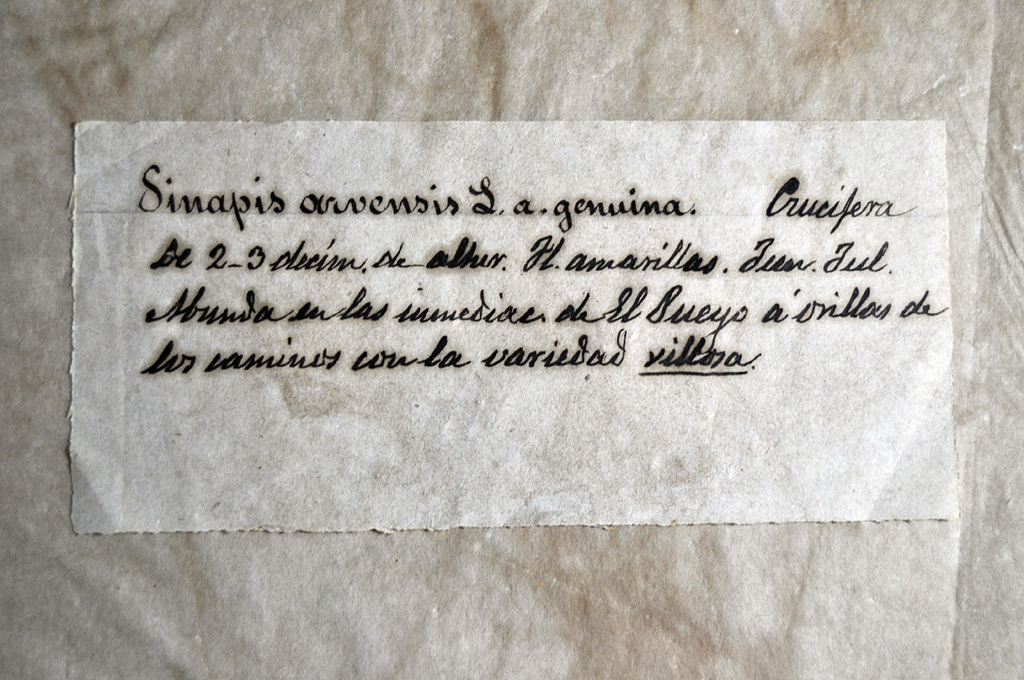 Sinapis arvensis L. a. genuina. Crucífera
De 2-3 decím. de altur. Fl. amarillas. Jun. Jul.
Abunda en las inmediac. de El Pueyo á orillas de
los caminos con la variedad villosa.